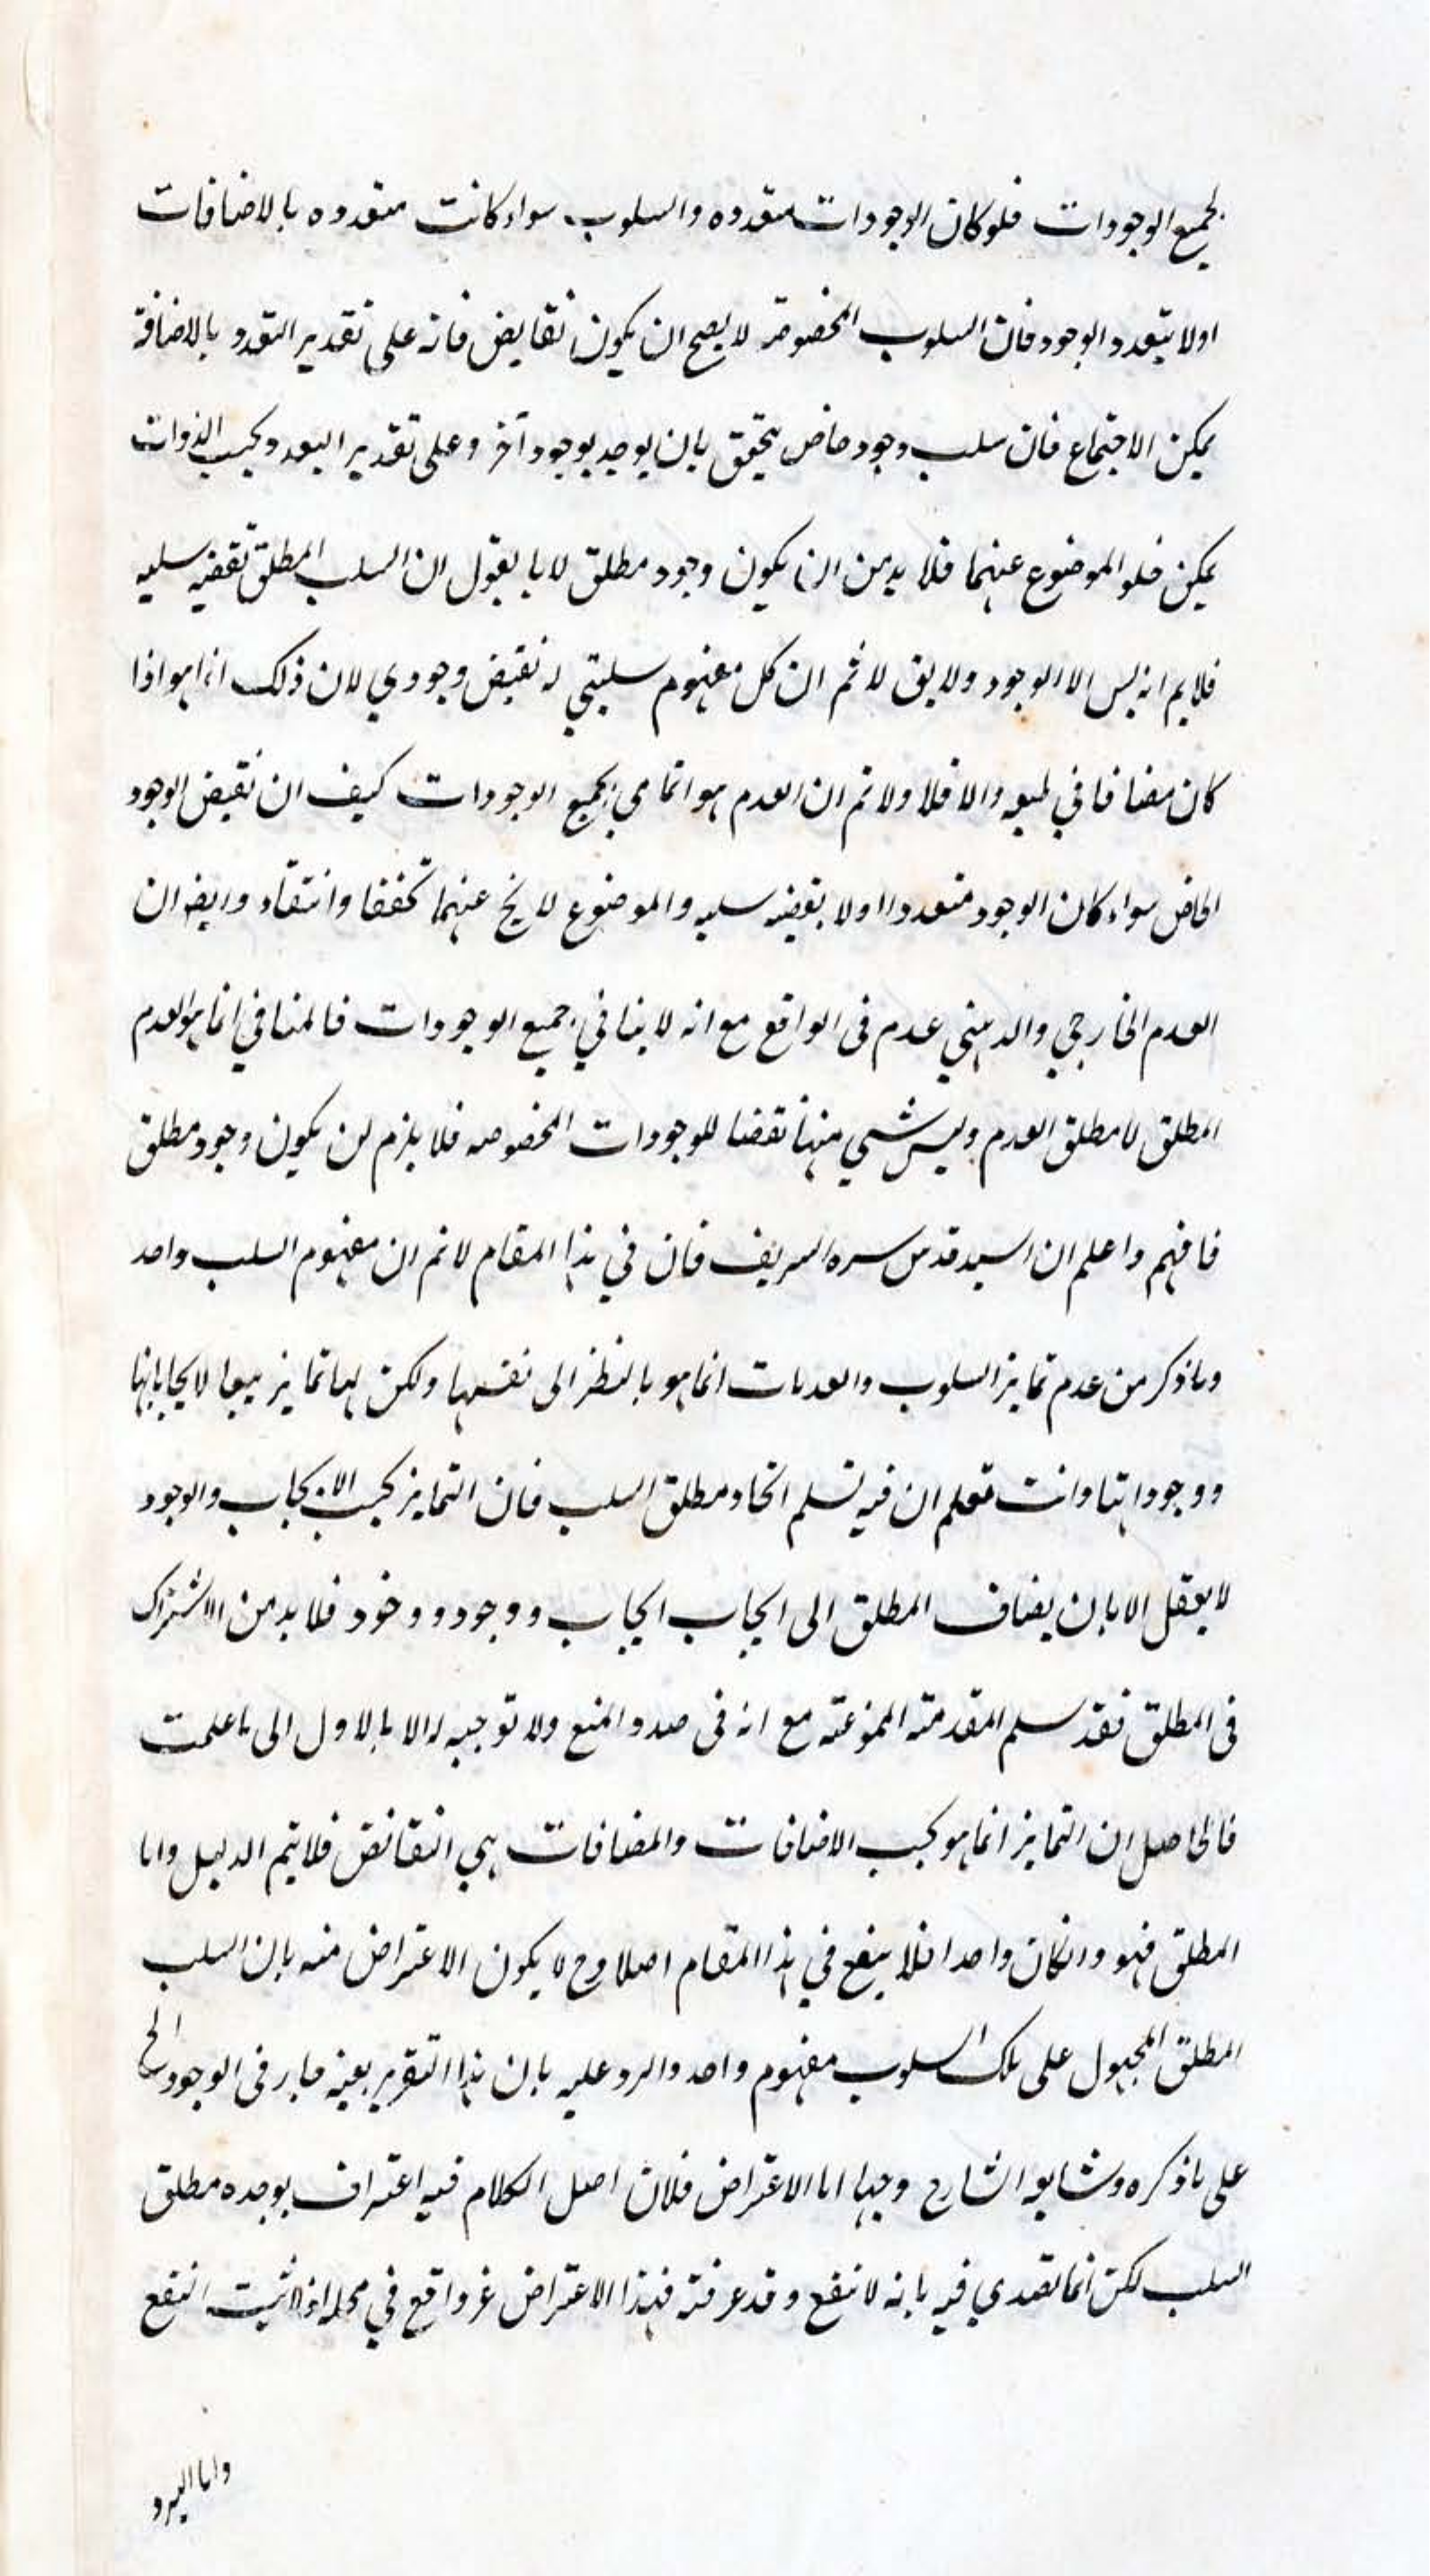 لجميع الوجودات فلو كان الوجودات متعدده والسلوب سواء كانت متعدده بالاضافات
اولا يتعدد الوجود فان السلوب المخصوصة لا يصح ان يكون نقايض فانه على تقدير التعدد بالاضافة
يمكن الاجتماع فان سلب وجود خاص يتحقق بان يوجد بوجود آخر وعلى تقدير التعدد بحسب الذوات
يمكن خلو الموضوع عنهما فلا بد من ان يكون وجود مطلق لانا نقول ان السلب المطلق نقضيه سلبه
فلا يم انه ليس الا الوجود ولا يق لا ثم ان كل مفهوم سلبي له نقيض وجودي لان ذلك انما هو اذا
كان مضافا في طبعه والا فلا ولا نم ان العدم هو المنافي لجميع الوجودات كيف ان نقيض الوجود
الخاص سواء كان الوجود متعددا اولا نقضيه سلبه والموضوع لا يخ عنهما تحققا وانتفاء وايضا ان
العدم الخارجي والذهني عدم فى الواقع مع انه لا ينافي جميع الوجودات فالمنافي انما هو العدم
المطلق لا مطلق العدم وليس شي منها نقضا للوجودات المخصوصه فلا يلزم ان يكون وجود مطلق
فافهم واعلم ان السيد قدس سره الشريف قال في هذا المقام لا نم ان مفهوم السلب واحد
وما ذكر من عدم تمايز السلوب والعدمات انما هو بالنظر الى نفسها ولكن لها تمايز تبعا لايجاباتها
ووجوداتها وانت تعلم ان فيه تسلم اتحاد مطلق السلب فان التمايز بحسب الايجاب والوجود
لا يعقل الا بان يضاف المطلق الى ايجاب ايجاب ووجود ووجود فلا بد من الاشتراك
فى المطلق فقد سلم المقدمة الممنوعة مع انه فى صدد المنع ولا توجيه له الا بالاول الى ما علمت
فالحاصل ان التمايز انما هو بحسب الاضافات والمضافات هي النقائض فلا يتم الدليل واما
المطلق فهو وانكان واحدا فلا ينفع في هذا المقام اصلا وح لا يكون الاعتراض منه بان السلب
المطلق المحمول على تلك السلوب مفهوم واحد والرد عليه بان هذا التقرير بعينه جار فى الوجود الخ
على ما ذكره وشايعه الشارح وجها اما الاعتراض فلان اصل الكلام فيه اعتراف بوحده مطلق
السلب لكن انما تصدي فيه بانه لا ينفع وقد عرفته فهذا الاعتراض غر واقع في محله اذ لا ثبت النفع
واما الرد